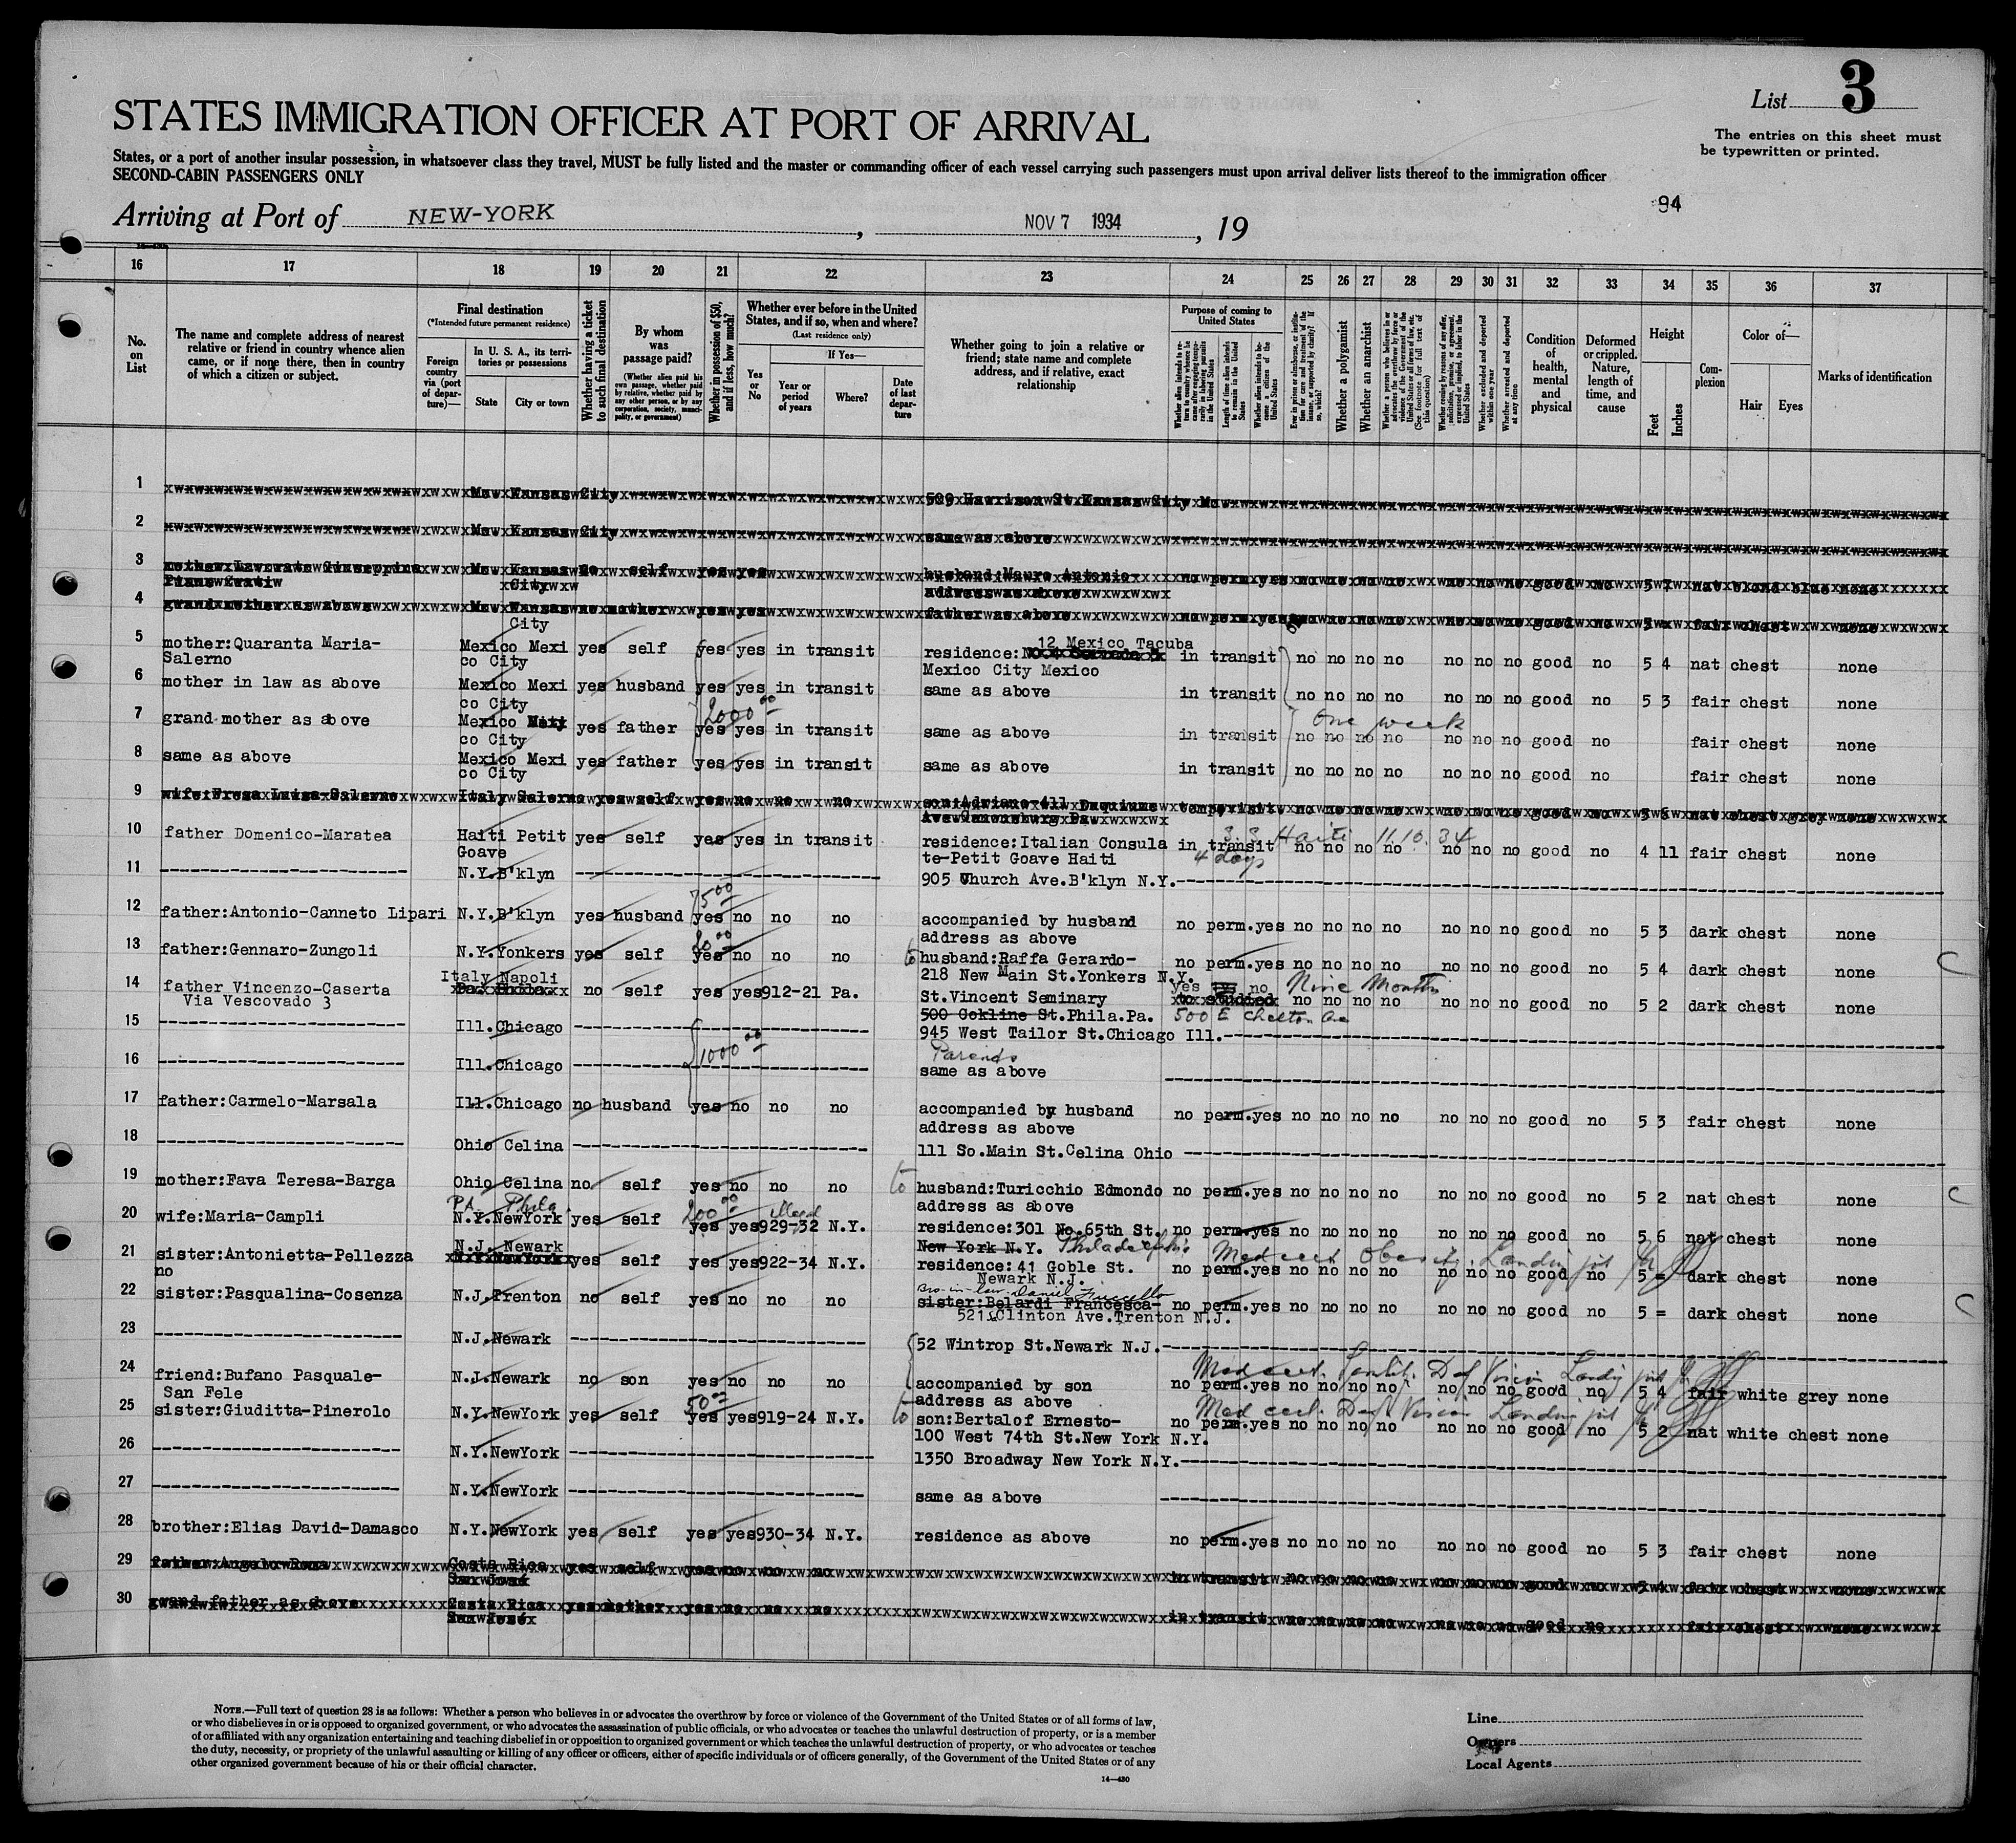 List 3
STATES IMMIGRATION OFFICER AT PORT OF ARRIVAL
The entries on this sheet must
be typewritten or printed.
States, or a port of another insular possession, in whatsoever class they travel, MUST be fully listed and the master or commanding officer of each vessel carrying such passengers must upon arrival deliver lists thereof to the immigration officer
SECOND-CABIN PASSENGERS ONLY
94
Arriving at Port of NEW-YORK, NOV 7 1934, 19
16 17 18 19 20 21 22 23 24 25 26 27 28 29 30 31 32 33 34 35 36 37
No. on List
The name and complete address of nearest relative or friend in country whence alien came, or if none there, then in country of which a citizen or subject.
Final destination
(*Intended future permanent residence)
Foreign country via (port of departure)—
In U. S. A., its territories or possessions
State
City or town
Whether having a ticket to such final destination
By whom was passage paid?
(Whether alien paid his own passage, whether paid by relative, whether paid by any other person, or by any corporation, society, municipality, or government)
Whether in possession of $50, and if less, how much?
Whether ever before in the United States, and if so, when and where?
(Last residence only)
Yes or No
If Yes—
Year or period of years
Where?
Date of last departure
Whether going to join a relative or friend; state name and complete address, and if relative, exact relationship
Purpose of coming to United States
Length of time alien intends to remain in the United States
Whether alien intends to become a citizen of the United States
Whether a polygamist
Whether an anarchist
Whether excluded and deported within one year
Whether arrested and deported at any time
Condition of health, mental and physical
Deformed or crippled. Nature, length of time, and cause
Height
Feet
Inches
Complexion
Color of—
Hair
Eyes
Marks of identification
1 Mo. Kansas City 509 Harrison St Kansas City Mo
2 Mo. Kansas City same as above
3 Mo. Kansas City no self yes yes husband Mauro Antonio address as above no perm yes no no no no no no no good no 5 2 nat blond blue none
4 grand mother as above Mo. Kansas City no mother yes yes father as above no perm yes no no no no no no good no fair chest none
5 mother:Quaranta Maria-Salerno Mexico Mexico City yes self yes yes in transit residence: 12 Mexico Tacuba Mexico City Mexico in transit no no no no no no no good no 5 4 nat chest none
6 mother in law as above Mexico Mexico City yes husband yes yes in transit same as above in transit no no no no no no no good no 5 3 fair chest none
2000 00
One week
7 grand mother as above Mexico Mexico City yes father yes yes in transit same as above in transit no no no no no no no good no fair chest none
8 same as above Mexico Mexico City yes father yes yes in transit same as above in transit no no no no no no no good no fair chest none
9 Italy Salerno yes self yes no no no son:Adriano 411 Duquisne temp.visit no no no no no no no good no 5 nat chest grey none
S.S. Haiti 11.10.34
10 father Domenico-Maratea Haiti Petit Goave yes self yes yes in transit residence:Italian Consulate-Petit Goave Haiti in transit 4 days no no no no no no no good no 4 11 fair chest none
11 N.Y.B'klyn 905 Church Ave.B'klyn N.Y.
75 00
12 father:Antonio-Canneto Lipari N.Y.B'klyn yes husband yes no no no accompanied by husband address as above no perm.yes no no no no no no no good no 5 3 dark chest none
13 father:Gennaro-Zungoli N.Y.Yonkers yes self yes no no no to husband:Raffa Gerardo-218 New Main St.Yonkers N.Y. no perm.yes no no no no no no no good no 5 4 dark chest none
14 father Vincenzo-Caserta Via Vescovado 3 Italy Napoli Pa. Phila. no self yes yes 912-21 Pa. St.Vincent Seminary 500 Cokline St.Phila.Pa. 500 E Chelton Ave yes no to studied Nine Months no no no no no no no good no 5 2 dark chest none
15 Ill.Chicago 945 West Tailor St.Chicago Ill.
1000 00
16 Ill.Chicago Parents same as above
17 father:Carmelo-Marsala Ill.Chicago no husband yes no no no accompanied by husband address as above no perm.yes no no no no no no no good no 5 3 fair chest none
18 Ohio Celina 111 So.Main St.Celina Ohio
19 mother:Fava Teresa-Barga Ohio Celina no self yes no no no to husband:Turicchio Edmondo address as above no perm.yes no no no no no no no good no 5 2 nat chest none
20 wife:Maria-Campli PA. Phila. N.Y.NewYork yes self 200 00 yes yes 929-32 N.Y. residence:301 No.65th St. New York N.Y. Philadelphia no perm.yes no no no no no no no good no 5 6 nat chest none
21 sister:Antonietta-Pellezzano N.J. Newark N.Y.NewYork yes self yes yes 922-34 N.Y. residence:41 Goble St. Newark N.J. no perm.yes no no no no no no no good no 5 = dark chest none
22 sister:Pasqualina-Cosenza N.J.Trenton no self yes no no no Bro-in-law-Daniel sister:Belardi Francesca-521 Clinton Ave.Trenton N.J. no perm.yes no no no no no no no good no 5 = dark chest none
23 N.J.Newark 52 Wintrop St.Newark N.J.
24 friend:Bufano Pasquale-San Fele N.J.Newark no son yes no no no accompanied by son address as above no perm.yes no no no no no no no good no 5 4 fair white grey none
25 sister:Giuditta-Pinerolo N.Y.NewYork yes self 50 00 yes yes 919-24 N.Y. to son:Bertalof Ernesto-100 West 74th St.New York N.Y. no perm.yes no no no no no no no good no 5 2 nat white chest none
26 N.Y.NewYork 1350 Broadway New York N.Y.
27 N.Y.NewYork same as above
28 brother:Elias David-Damasco N.Y.NewYork yes self yes yes 930-34 N.Y. residence as above no perm.yes no no no no no no no good no 5 3 fair chest none
29 father:Angelo Roma Costa Rica San José yes self yes no no no in transit no no no no no no no good no 5 4 fair chest none
30 grand father as above Costa Rica San José yes mother yes no no no in transit no no no no no no no good no fair chest none
NOTE.—Full text of question 28 is as follows: Whether a person who believes in or advocates the overthrow by force or violence of the Government of the United States or of all forms of law,
or who disbelieves in or is opposed to organized government, or who advocates the assassination of public officials, or who advocates or teaches the unlawful destruction of property, or is a member
of or affiliated with any organization entertaining and teaching disbelief in or opposition to organized government or which teaches the unlawful destruction of property, or who advocates or teaches
the duty, necessity, or propriety of the unlawful assaulting or killing of any officer or officers, either of specific individuals or of officers generally, of the Government of the United States or of any
other organized government because of his or their official character.
14—430
Line
Owners
Local Agents